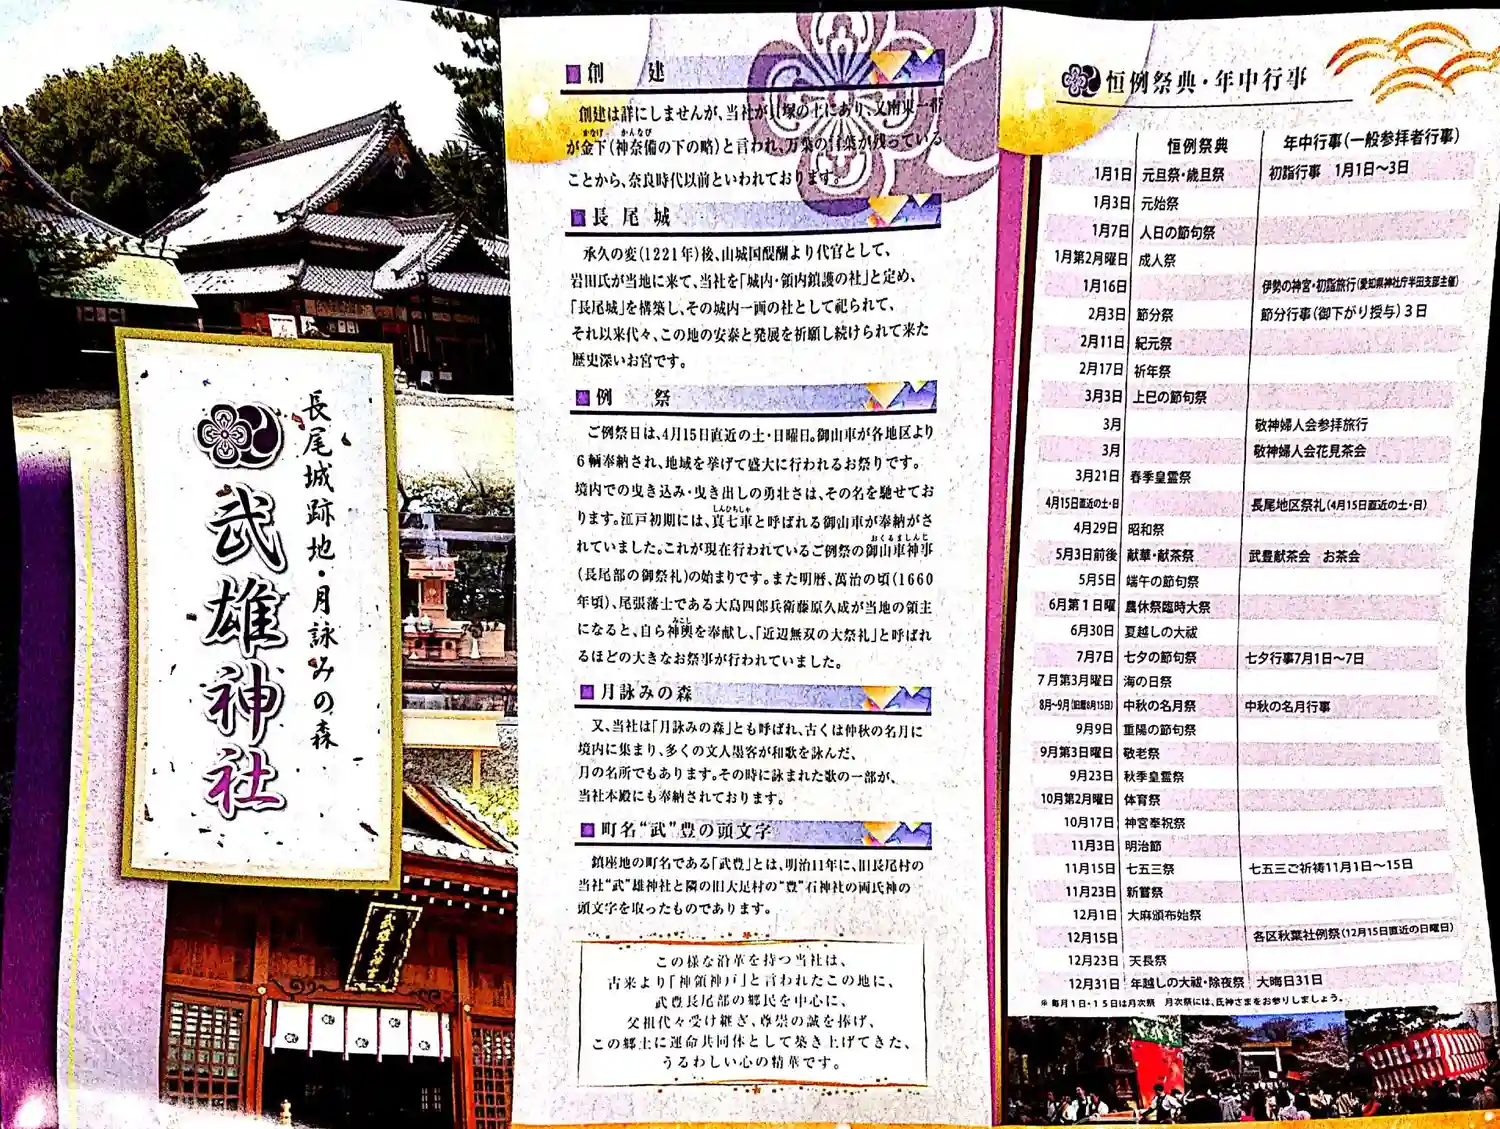 長尾城跡地・月詠みの森
武雄神社
武雄天神宮
創 建
創建は詳にしませんが、当社が貝塚の上にあり、又南東一帯
が金下(神奈備の下の略)と言われ、万葉の言葉が残っている
かなげ かんなび
ことから、奈良時代以前といわれております。
長尾城
承久の変(1221年)後、山城国醍醐より代官として、
岩田氏が当地に来て、当社を「城内・領内鎮護の社」と定め、
「長尾城」を構築し、その城内一画の社として祀られて、
それ以来代々、この地の安泰と発展を祈願し続けられて来た
歴史深いお宮です。
例 祭
ご例祭日は、4月15日直近の土・日曜日。御山車が各地区より
6輌奉納され、地域を挙げて盛大に行われるお祭りです。
境内での曳き込み・曳き出しの勇壮さは、その名を馳せてお
ります。江戸初期には、真七車と呼ばれる御山車が奉納がさ
しんひちしゃ
れていました。これが現在行われているご例祭の御山車神事
おくるましんじ
(長尾部の御祭礼)の始まりです。また明暦、萬治の頃(1660
年頃)、尾張藩士である大島四郎兵衛藤原久成が当地の領主
になると、自ら神輿を奉献し、「近辺無双の大祭礼」と呼ばれ
みこし
るほどの大きなお祭事が行われていました。
月詠みの森
又、当社は「月詠みの森」とも呼ばれ、古くは仲秋の名月に
境内に集まり、多くの文人墨客が和歌を詠んだ、
月の名所でもあります。その時に詠まれた歌の一部が、
当社本殿にも奉納されております。
町名“武”豊の頭文字
鎮座地の町名である「武豊」とは、明治11年に、旧長尾村の
当社“武”雄神社と隣の旧大足村の“豊”石神社の両氏神の
頭文字を取ったものであります。
この様な沿革を持つ当社は、
古来より「神領神戸」と言われたこの地に、
武豊長尾部の郷民を中心に、
父祖代々受け継ぎ、尊崇の誠を捧げ、
この郷土に運命共同体として築き上げてきた、
うるわしい心の精華です。
恒例祭典・年中行事
恒例祭典 年中行事(一般参拝者行事)
1月1日 元旦祭・歳旦祭 初詣行事 1月1日~3日
1月3日 元始祭
1月7日 人日の節句祭
1月第2月曜日 成人祭
1月16日 伊勢の神宮・初詣旅行(愛知県神社庁半田支部主催)
2月3日 節分祭 節分行事(御下がり授与)3日
2月11日 紀元祭
2月17日 祈年祭
3月3日 上巳の節句祭
3月 敬神婦人会参拝旅行
3月 敬神婦人会花見茶会
3月21日 春季皇霊祭
4月15日直近の土・日 長尾地区祭礼(4月15日直近の土・日)
4月29日 昭和祭
5月3日前後 献華・献茶祭 武豊献茶会 お茶会
5月5日 端午の節句祭
6月第1日曜 農休祭臨時大祭
6月30日 夏越しの大祓
7月7日 七夕の節句祭 七夕行事7月1日~7日
7月第3月曜日 海の日祭
8月~9月(旧暦8月15日) 中秋の名月祭 中秋の名月行事
9月9日 重陽の節句祭
9月第3日曜日 敬老祭
9月23日 秋季皇霊祭
10月第2月曜日 体育祭
10月17日 神宮奉祝祭
11月3日 明治節
11月15日 七五三祭 七五三ご祈祷11月1日~15日
11月23日 新嘗祭
12月1日 大麻頒布始祭
12月15日 各区秋葉社例祭(12月15日直近の日曜日)
12月23日 天長祭
12月31日 年越しの大祓・除夜祭 大晦日31日
※毎月1日・15日は月次祭 月次祭には、氏神さまをお参りしましょう。